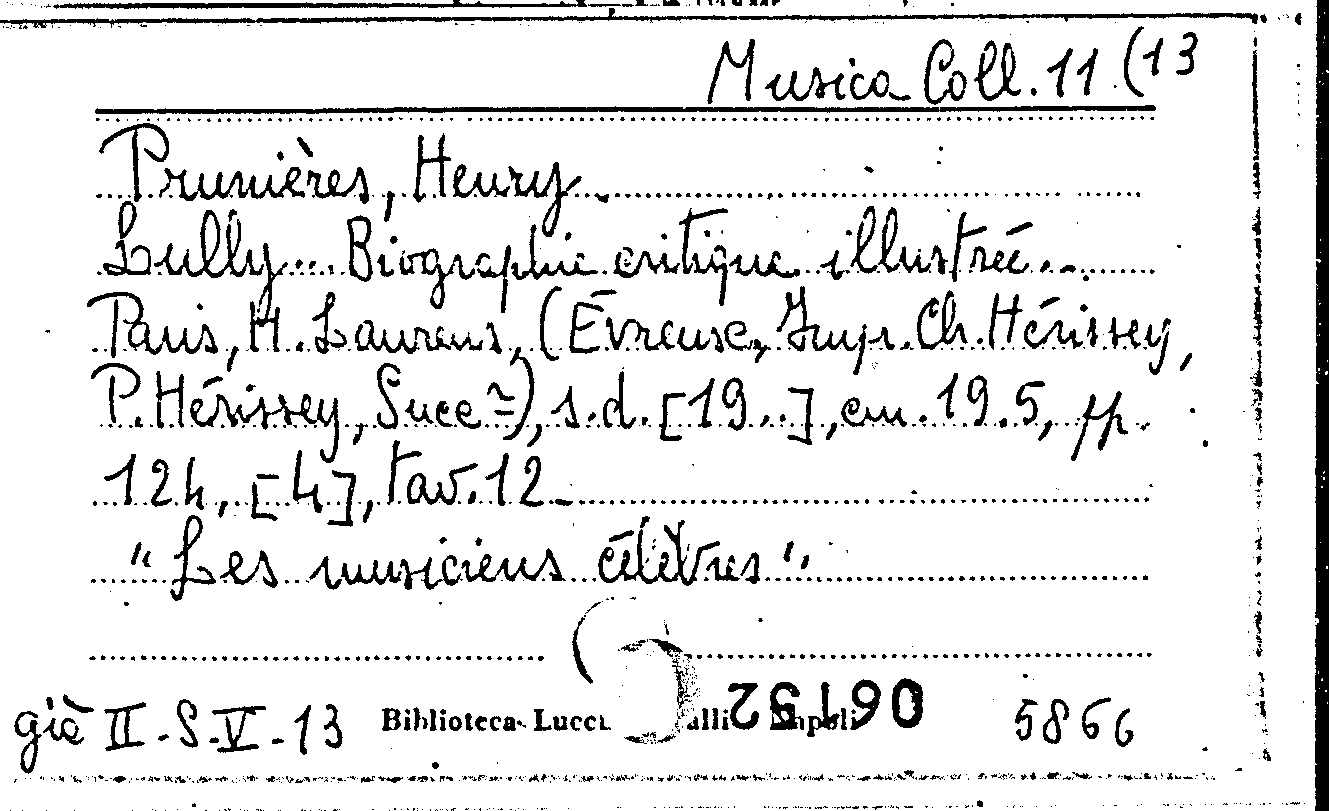 Musica Coll. 11 (13
Prunières, Henry
Lully... Biographie critique illustrée.
Paris, H. Laurens, (Évreuse, Impr. Ch. Hérissey,
P. Hérissey, Succ.r), s.d. [19..], cm. 19.5, pp.
124, [4], tav. 12
"Les musiciens célèbres".
già II-S-V-13
Biblioteca Lucc
06152
5866